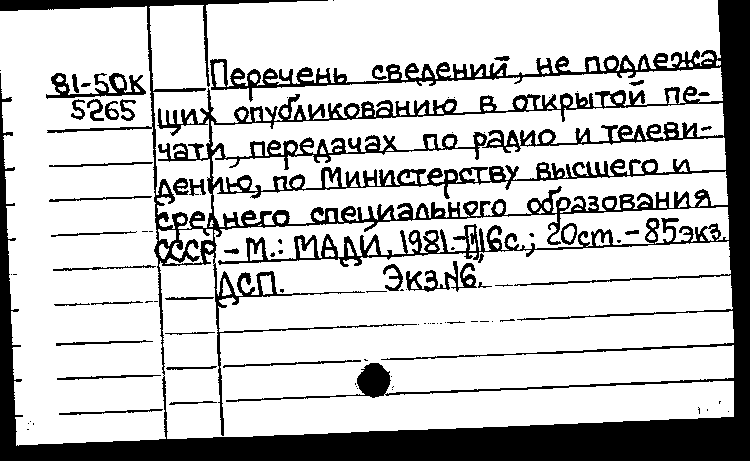 81-50К
5265
Перечень сведений, не подлежа-
щих опубликованию в открытой пе-
чати, передачах по радио и телеви-
дению, по Министерству высшего и
среднего специального образования
СССР. - М.: МАДИ, 1981.- 16с.; 20см. - 85экз.
ДСП. Экз.№6.